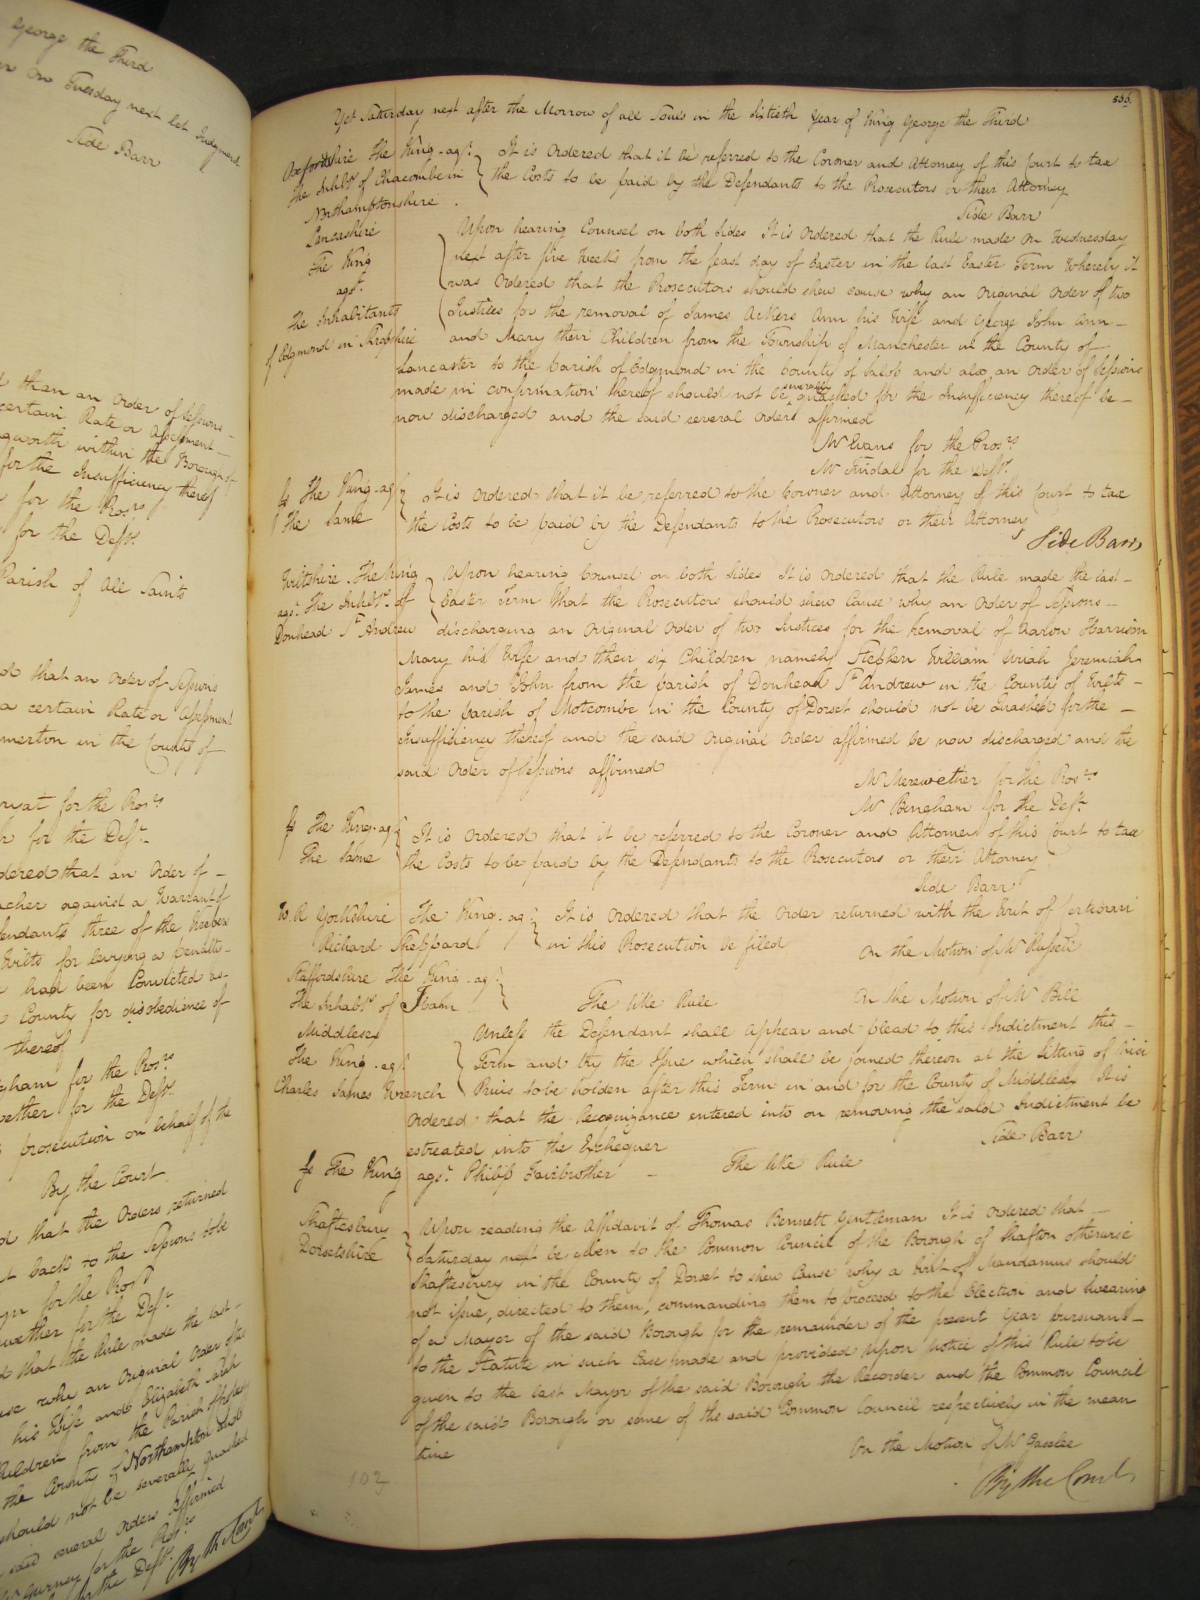 George the Third
on Tuesday next let Judgment
Side Barr
than an Order of Sessions
certain Rate or Assessment
within the Borough of
for the Insufficiency thereof
for the Pros.rs
for the Def.ts
Parish of All Saints
that an Order of Sessions
a certain Rate or Assessment
in the County of
for the Pros.rs
for the Def.ts
ordered that an Order of
against a Warrant of
three of the
Wilts for levying a penalty
had been Convicted
County for disobedience of
thereof
for the Pros.rs
for the Def.ts
prosecution on behalf of the
By the Court
that the Orders returned
back to the Sessions to be
for the Pros.rs
for the Def.ts
that the Rule made the last
why an Original Order of two
his Wife and Elizabeth
Children from the Parish of
the County of Northampton
should not be severally quashed
said several Orders affirmed
Gurney for the Pros.rs
the Def.ts
By the Court
Yet Saturday next after the Morrow of all Souls in the Sixtieth Year of King George the Third
Oxfordshire The King ag.t It is Ordered that it be referred to the Coroner and Attorney of this Court to tax
the Inhab.ts of Chacombe in the Costs to be paid by the Defendants to the Prosecutors or their Attorney
Northamptonshire
Side Barr
Lancashire Upon hearing Counsel on both sides It is Ordered that the Rule made on Wednesday
The King next after five Weeks from the feast day of Easter in the last Easter Term Whereby it
ags.t was Ordered that the Prosecutors should shew cause why an Original Order of two
The Inhabitants Justices for the removal of James Ackers Ann his Wife and George John Ann
of Edgmond in Shropshire and Mary their Children from the Township of Manchester in the County of
Lancaster to the Parish of Edgmond in the County of Salop and also an Order of Sessions
made in confirmation thereof should not be severally quashed for the Insufficiency thereof be
now discharged and the said several Orders affirmed
Mr Evans for the Pros.rs
Mr Tindal for the Def.ts
The King ag.t It is Ordered that it be referred to the Coroner and Attorney of this Court to tax
The Same the Costs to be paid by the Defendants to the Prosecutors or their Attorney
Side Barr
Wiltshire The King Upon hearing Counsel on both sides It is Ordered that the Rule made the last
ags.t The Inhab.ts of Easter Term that the Prosecutors should shew Cause why an Order of Sessions
Donhead St Andrew discharging an Original Order of two Justices for the removal of Aaron Harrison
Mary his Wife and their six Children namely Stephen William Uriah Jeremiah
James and John from the Parish of Donhead St Andrew in the County of Wilts
to the Parish of Motcombe in the County of Dorset should not be Quashed for the
Insufficiency thereof and the said Original Order affirmed be now discharged and the
said Order of Sessions affirmed
Mr Merewether for the Pros.rs
Mr Bingham for the Def.ts
The King ag.t It is Ordered that it be referred to the Coroner and Attorney of this Court to tax
The Same the Costs to be paid by the Defendants to the Prosecutors or their Attorney
Side Barr
W. R Yorkshire The King ag.t It is Ordered that the Order returned with the Writ of Certiorari
Richard Sheppard in this Prosecution be filed On the Motion of Mr Russell
Staffordshire The King ag.t
The Inhab.ts of Ilam The like Rule On the Motion of Mr Bill
Middlesex Unless the Defendant shall appear and plead to this Indictment this
The King ag.t Term and try the Issue which shall be joined thereon at the Sitting of Nisi
Charles James Wrench Prius to be holden after this Term in and for the County of Middlesex It is
Ordered that the Recognizance entered into on removing the said Indictment be
estreated into the Exchequer Side Barr
The King ags.t Philip Fairbrother The like Rule
Shaftesbury Upon reading the Affidavit of Thomas Bennett Gentleman It is Ordered that
Dorsetshire Saturday next be given to the Common Council of the Borough of Shafton otherwise
Shaftesbury in the County of Dorset to shew Cause why a Writ of Mandamus should
not issue, directed to them, commanding them to proceed to the Election and Swearing
of a Mayor of the said Borough for the remainder of the present Year pursuant
to the Statute in such Case made and provided Upon Notice of this Rule to be
given to the last Mayor of the said Borough the Recorder and the Common Council
of the said Borough or some of the said Common Council respectively in the mean
time On the Motion of Mr Gaselee
By the Court
102